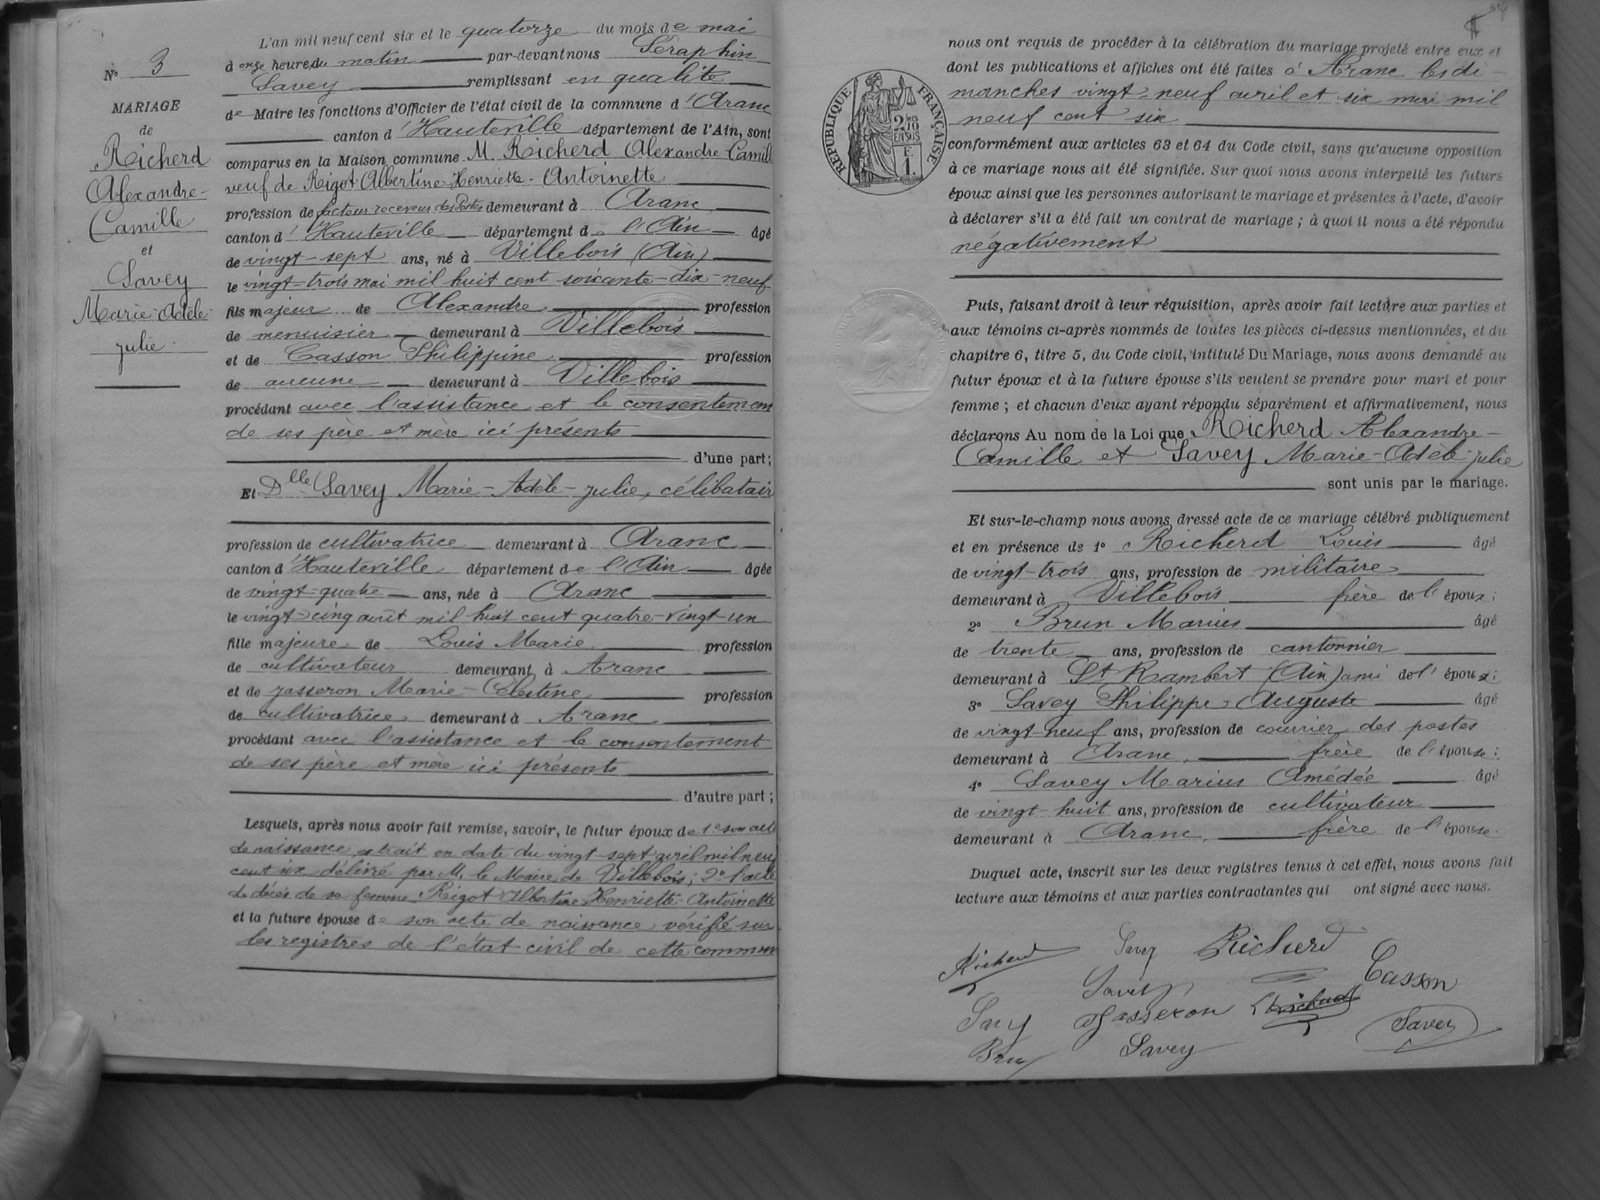 N° 3
MARIAGE
de
Richerd
Alexandre-
Camille
et
Savey
Marie-Adèle-
julie
L'an mil neuf cent six et le quatorze du mois de mai
à onze heures du matin par-devant nous Séraphin
Savey remplissant en qualité
de Maire les fonctions d'Officier de l'état civil de la commune d'Aranc
canton d'Hauteville département de l'Ain, sont
comparus en la Maison commune M. Richerd Alexandre Camill
veuf de Rigot Albertine Henriette-Antoinette
profession de facteur receveur des Postes demeurant à Aranc
canton d'Hauteville département de l'Ain âgé
de vingt-sept ans, né à Villebois (Ain)
le vingt-trois mai mil huit cent soixante-dix-neuf
fils majeur de Alexandre profession
de menuisier demeurant à Villebois
et de Casson Philippine profession
de aucune demeurant à Villebois
procédant avec l'assistance et le consentement
de ses père et mère ici présents
d'une part;
Et Dlle Savey Marie-Adèle-julie, célibatair
profession de cultivatrice demeurant à Aranc
canton d'Hauteville département de l'Ain âgée
de vingt-quatre ans, née à Aranc
le vingt-cinq août mil huit cent quatre-vingt-un
fille majeure de Louis Marie profession
de cultivateur demeurant à Aranc
et de jasseron Marie-Célestine profession
de cultivatrice demeurant à Aranc
procédant avec l'assistance et le consentement
de ses père et mère ici présents
d'autre part;
Lesquels, après nous avoir fait remise, savoir, le futur époux de 1° son acte
de naissance extrait en date du vingt-sept avril mil neuf
cent six délivré par M. le Maire de Villebois; 2° l'acte
de décès de sa femme Rigot Albertine Henriette-Antoinette
et la future épouse de son acte de naissance vérifié sur
les registres de l'état civil de cette commune
nous ont requis de procéder à la célébration du mariage projeté entre eux et
dont les publications et affiches ont été faites à Aranc les di-
manches vingt-neuf avril et six mai mil
neuf cent six
RÉPUBLIQUE FRANÇAISE
2/10 EN SUS
F. 1.
conformément aux articles 63 et 64 du Code civil, sans qu'aucune opposition
à ce mariage nous ait été signifiée. Sur quoi nous avons interpellé les futurs
époux ainsi que les personnes autorisant le mariage et présentes à l'acte, d'avoir
à déclarer s'il a été fait un contrat de mariage ; à quoi il nous a été répondu
négativement
Puis, faisant droit à leur réquisition, après avoir fait lecture aux parties et
aux témoins ci-après nommés de toutes les pièces ci-dessus mentionnées, et du
chapitre 6, titre 5, du Code civil, intitulé Du Mariage, nous avons demandé au
futur époux et à la future épouse s'ils veulent se prendre pour mari et pour
femme ; et chacun d'eux ayant répondu séparément et affirmativement, nous
déclarons Au nom de la Loi que Richerd Alexandre-
Camille et Savey Marie-Adèle-julie
sont unis par le mariage.
Et sur-le-champ nous avons dressé acte de ce mariage célébré publiquement
et en présence de 1° Richerd Louis âgé
de vingt-trois ans, profession de militaire
demeurant à Villebois frère de l'époux;
2° Brun Marius âgé
de trente ans, profession de cantonnier
demeurant à St Rambert (Ain) ami de l'époux;
3° Savey Philippe-Auguste âgé
de vingt-neuf ans, profession de courrier des postes
demeurant à Aranc frère de l'épouse;
4° Savey Marius Amédée âgé
de vingt-huit ans, profession de cultivateur
demeurant à Aranc frère de l'épouse.
Duquel acte, inscrit sur les deux registres tenus à cet effet, nous avons fait
lecture aux témoins et aux parties contractantes qui ont signé avec nous.
Richerd Savey Richerd
Savey Casson
Savey Jasseron Richerd Savey
Brun Savey